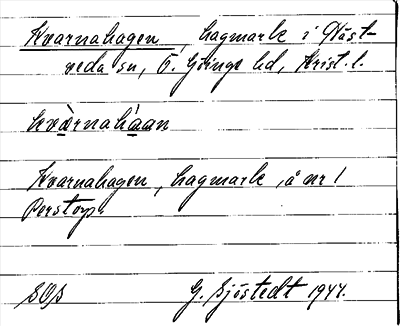 Kvarnahagen, hagmark i Gläst-
veda sn, Ö. Göinge hd, Krist. l.
kvàrnahá̱a̱n
Kvarnahagen, hagmark, å nr 1
Perstorp.
SOS G. Sjöstedt 1944.